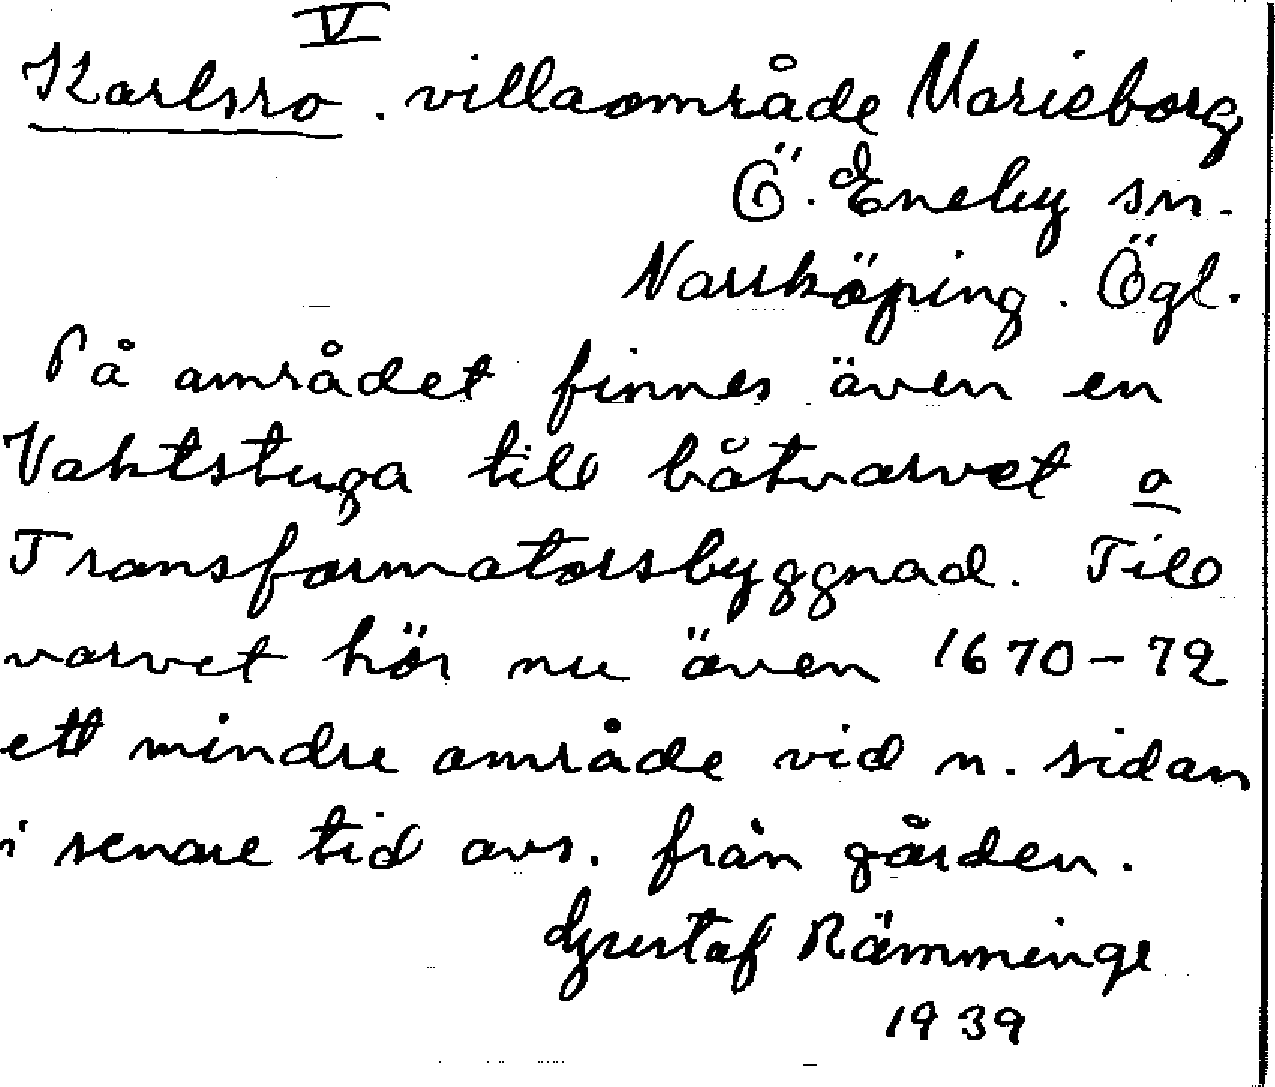 V
Karlsro. villaområde Marieborg
Ö. Eneby sn.
Norrköping. Ögl.
På området finnes även en
Vaktstuga till båtvarvet o
Transformatorsbyggnad. Till
varvet hör nu även 1670-72
ett mindre område vid n. sidan
i senare tid avs. från gården.
Gustaf Rämminge
1939